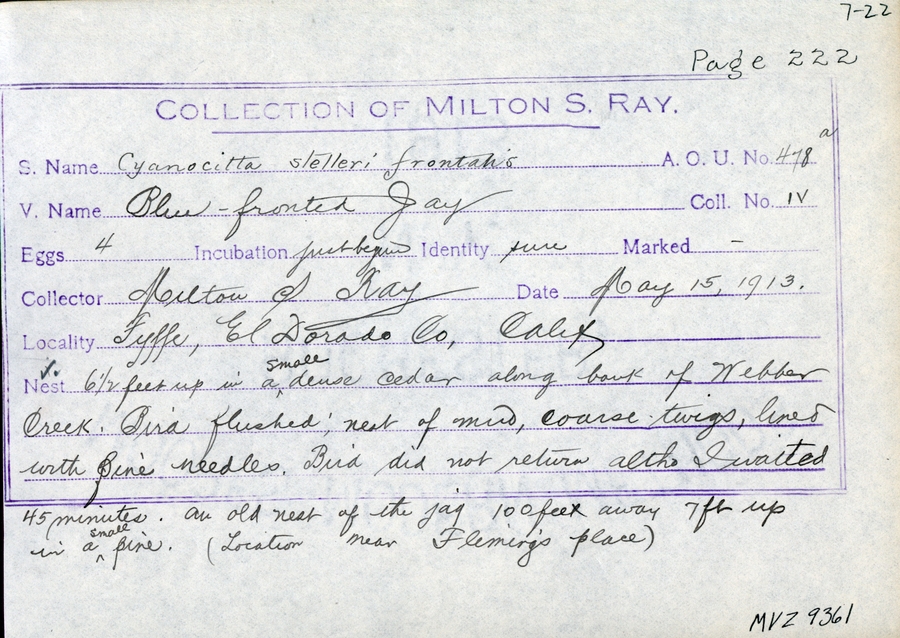 7-22
Page 222
COLLECTION OF MILTON S. RAY.
S. Name Cyanocitta stelleri frontalis A. O. U. No. 478a
V. Name Blue-fronted Jay Coll. No. IV
Eggs 4 Incubation just begun Identity sure Marked –
Collector Milton S Ray Date May 15, 1913.
Locality Fyffe, El Dorado Co, Calif
Nest 6 1/2 feet up in a small dense cedar along bank of Webber
Creek. Bird flushed; nest of mud, coarse twigs, lined
with pine needles. Bird did not return altho I waited
45 minutes. An old nest of the jay 100 feet away 7ft up
in a small pine. (Location near Fleming's place)
MVZ 9361